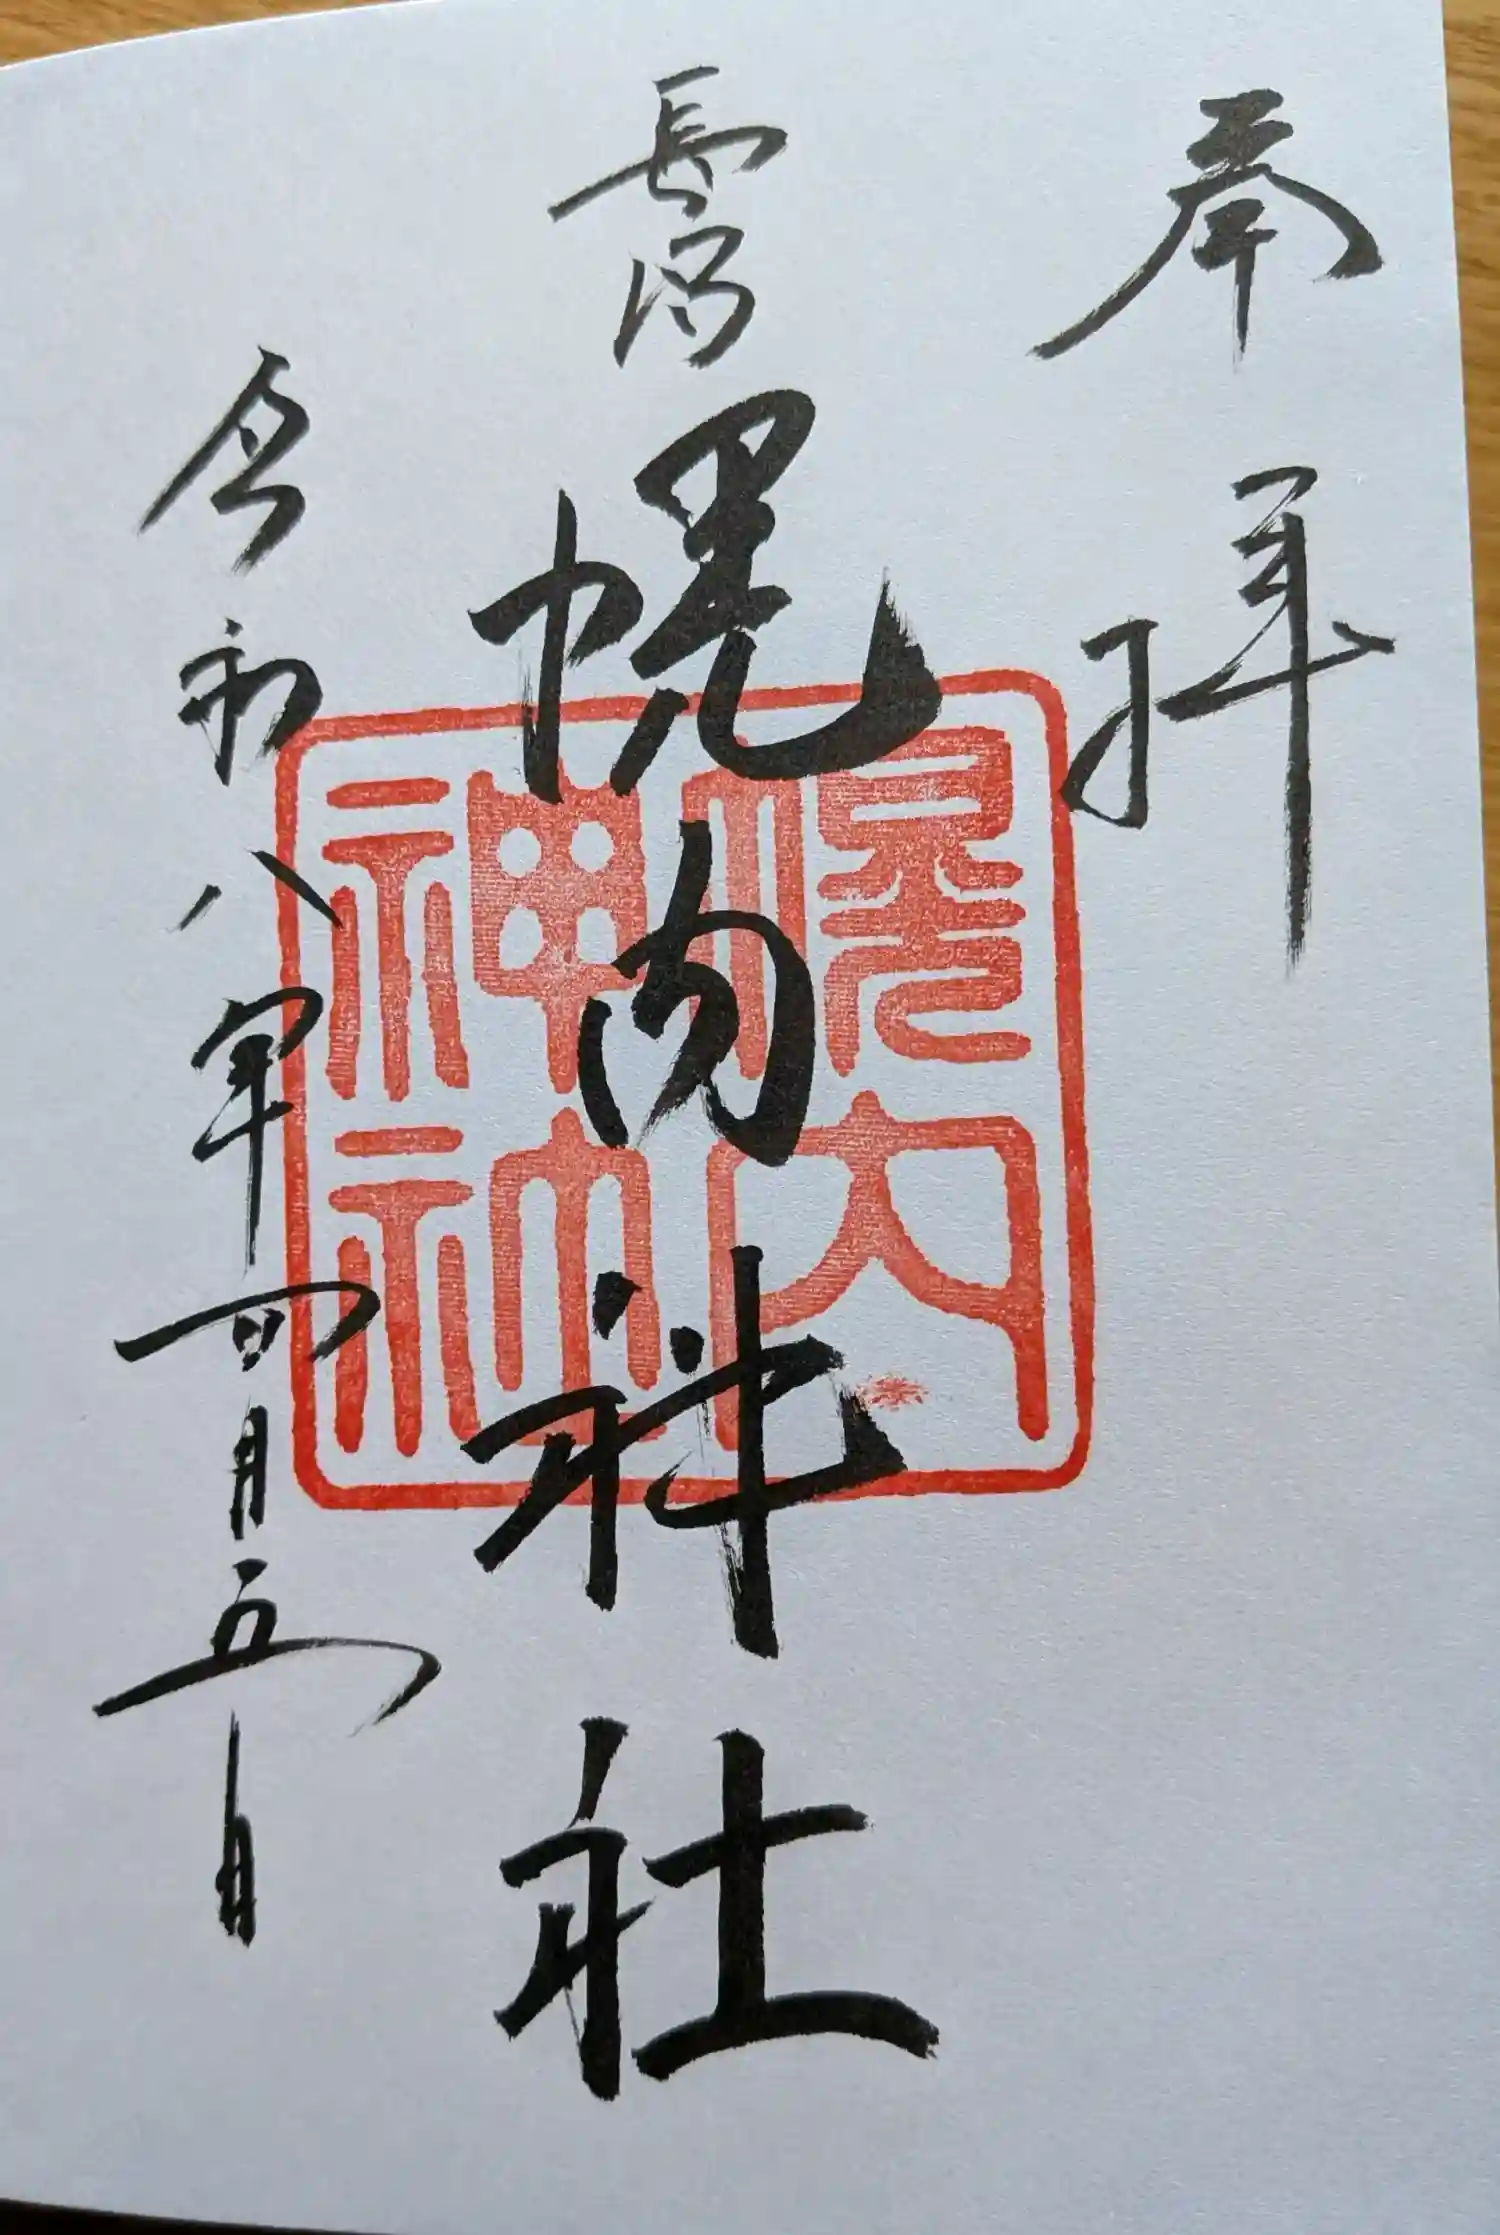 奉拝
長沼
幌内神社
令和八年四月五日
幌内
神社